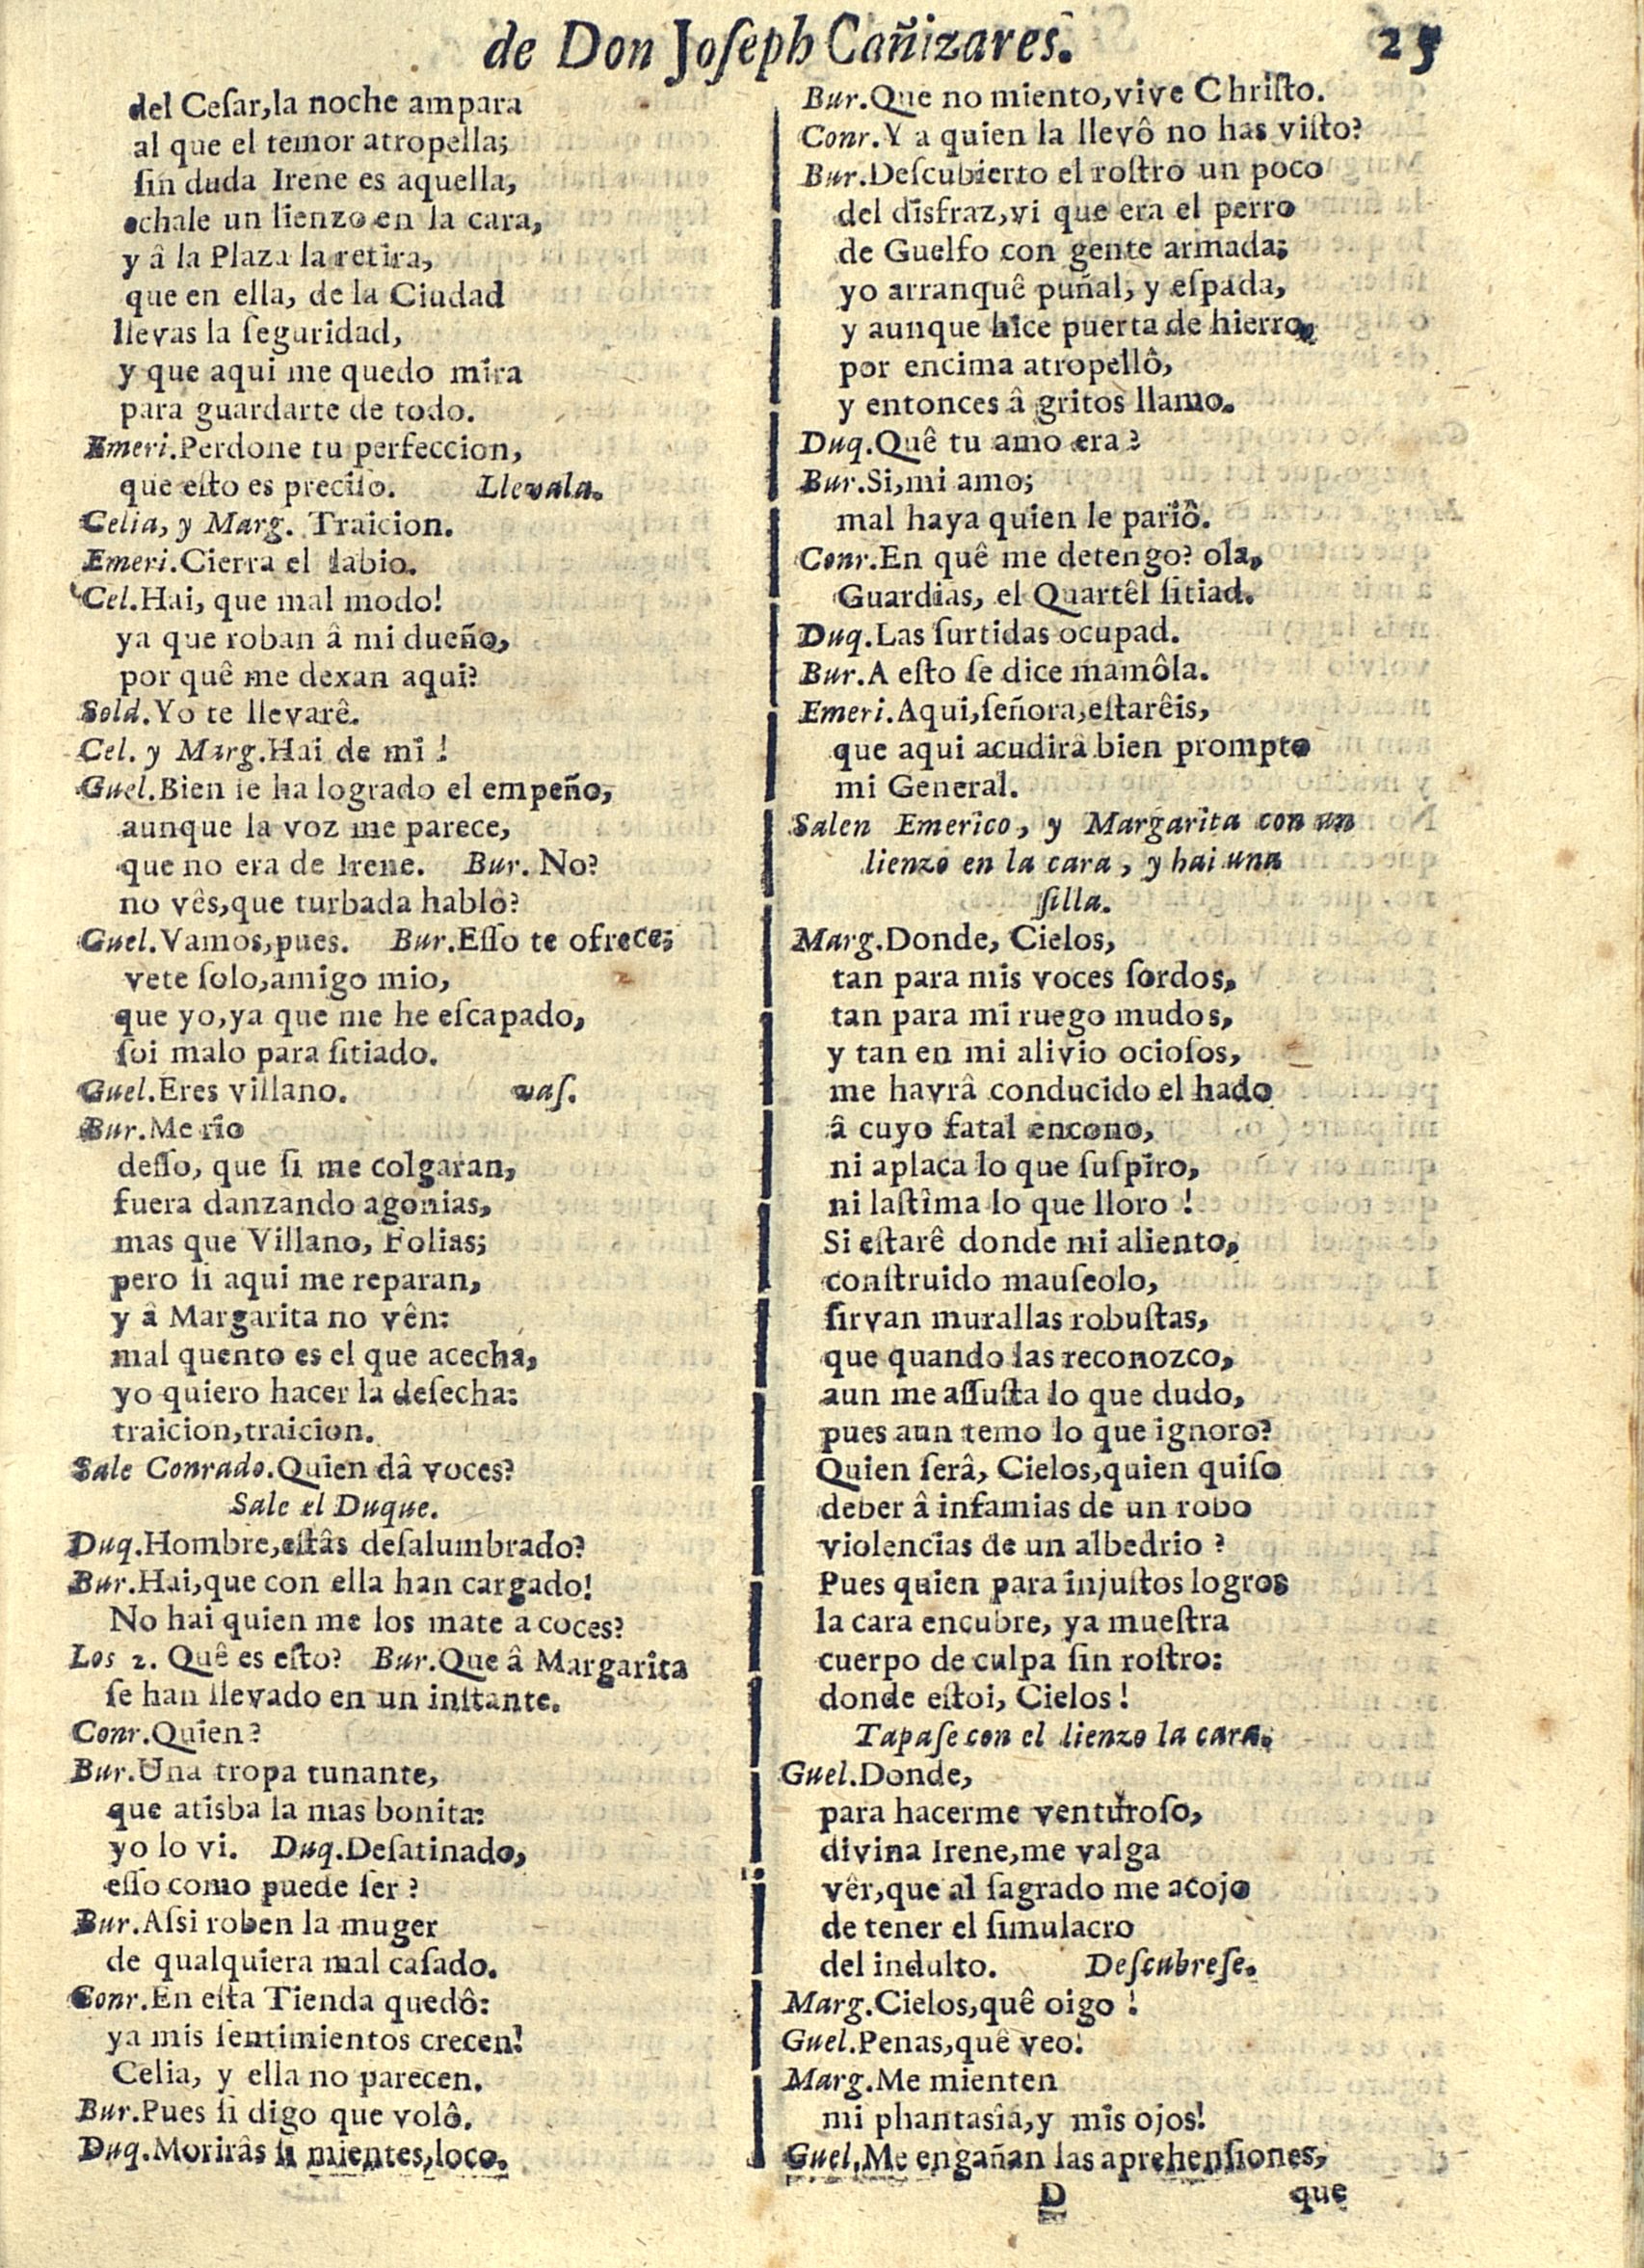 de Don Joſeph Cañizares. 25
del Ceſar,la noche ampara
al que el temor atropella;
ſin duda Irene es aquella,
echale un lienzo en la cara,
y â la Plaza la retira,
que en ella, de la Ciudad
llevas la ſeguridad,
y que aqui me quedo mira
para guardarte de todo.
Emeri.Perdone tu perfeccion,
que eſto es preciſo. Llevala.
Celia, y Marg. Traicion.
Emeri.Cierra el labio.
Cel.Hai, que mal modo!
ya que roban â mi dueño,
por quê me dexan aqui?
Sold.Yo te llevarê.
Cel. y Marg.Hai de mi!
Guel.Bien ſe ha logrado el empeño,
aunque la voz me parece,
que no era de Irene. Bur. No?
no vês,que turbada hablô?
Guel.Vamos,pues. Bur.Eſſo te ofrece;
vete ſolo,amigo mio,
que yo,ya que me he eſcapado,
ſoi malo para ſitiado.
Guel.Eres villano. vaſ.
Bur.Me rio
deſſo, que ſi me colgaran,
fuera danzando agonias,
mas que Villano, Folias;
pero ſi aqui me reparan,
y â Margarita no vên:
mal quento es el que acecha,
yo quiero hacer la deſecha:
traicion,traicion.
Sale Conrado.Quien dâ voces?
Sale el Duque.
Duq.Hombre,eſtâs deſalumbrado?
Bur.Hai,que con ella han cargado!
No hai quien me los mate a coces?
Los 2. Quê es eſto? Bur.Que â Margarita
ſe han llevado en un inſtante.
Conr.Quien?
Bur.Una tropa tunante,
que atisba la mas bonita:
yo lo vi. Duq.Deſatinado,
eſſo como puede ſer?
Bur.Aſsi roben la muger
de qualquiera mal caſado.
Conr.En eſta Tienda quedô:
ya mis ſentimientos crecen!
Celia, y ella no parecen.
Bur.Pues ſi digo que volô.
Duq.Morirâs ſi mientes,loco.
Bur.Que no miento,vive Chriſto.
Conr.Y a quien la llevô no has viſto?
Bur.Deſcubierto el roſtro un poco
del disfraz,vi que era el perro
de Guelfo con gente armada;
yo arranquê puñal, y eſpada,
y aunque hice puerta de hierro,
por encima atropellô,
y entonces â gritos llamo.
Duq.Quê tu amo era?
Bur.Si,mi amo;
mal haya quien le pariô.
Conr.En quê me detengo? ola,
Guardias, el Quartêl ſitiad.
Duq.Las ſurtidas ocupad.
Bur.A eſto ſe dice mamôla.
Emeri.Aqui,ſeñora,eſtarêis,
que aqui acudirâ bien prompto
mi General.
Salen Emerico, y Margarita con un
lienzo en la cara, y hai una
ſilla.
Marg.Donde, Cielos,
tan para mis voces ſordos,
tan para mi ruego mudos,
y tan en mi alivio ocioſos,
me havrâ conducido el hado
â cuyo fatal encono,
ni aplaca lo que ſuſpiro,
ni laſtîma lo que lloro!
Si eſtarê donde mi aliento,
conſtruido mauſeolo,
ſirvan murallas robuſtas,
que quando las reconozco,
aun me aſſuſta lo que dudo,
pues aun temo lo que ignoro?
Quien ſerâ, Cielos,quien quiſo
deber â infamias de un robo
violencias de un albedrio?
Pues quien para injuſtos logros
la cara encubre, ya mueſtra
cuerpo de culpa ſin roſtro:
donde eſtoi, Cielos!
Tapaſe con el lienzo la cara.
Guel.Donde,
para hacerme venturoſo,
divina Irene,me valga
vêr,que al ſagrado me acojo
de tener el ſimulacro
del indulto. Deſcubreſe.
Marg.Cielos,quê oigo!
Guel.Penas,quê veo!
Marg.Me mienten
mi phantasîa,y mis ojos!
Guel.Me engañan las aprehenſiones,
D que